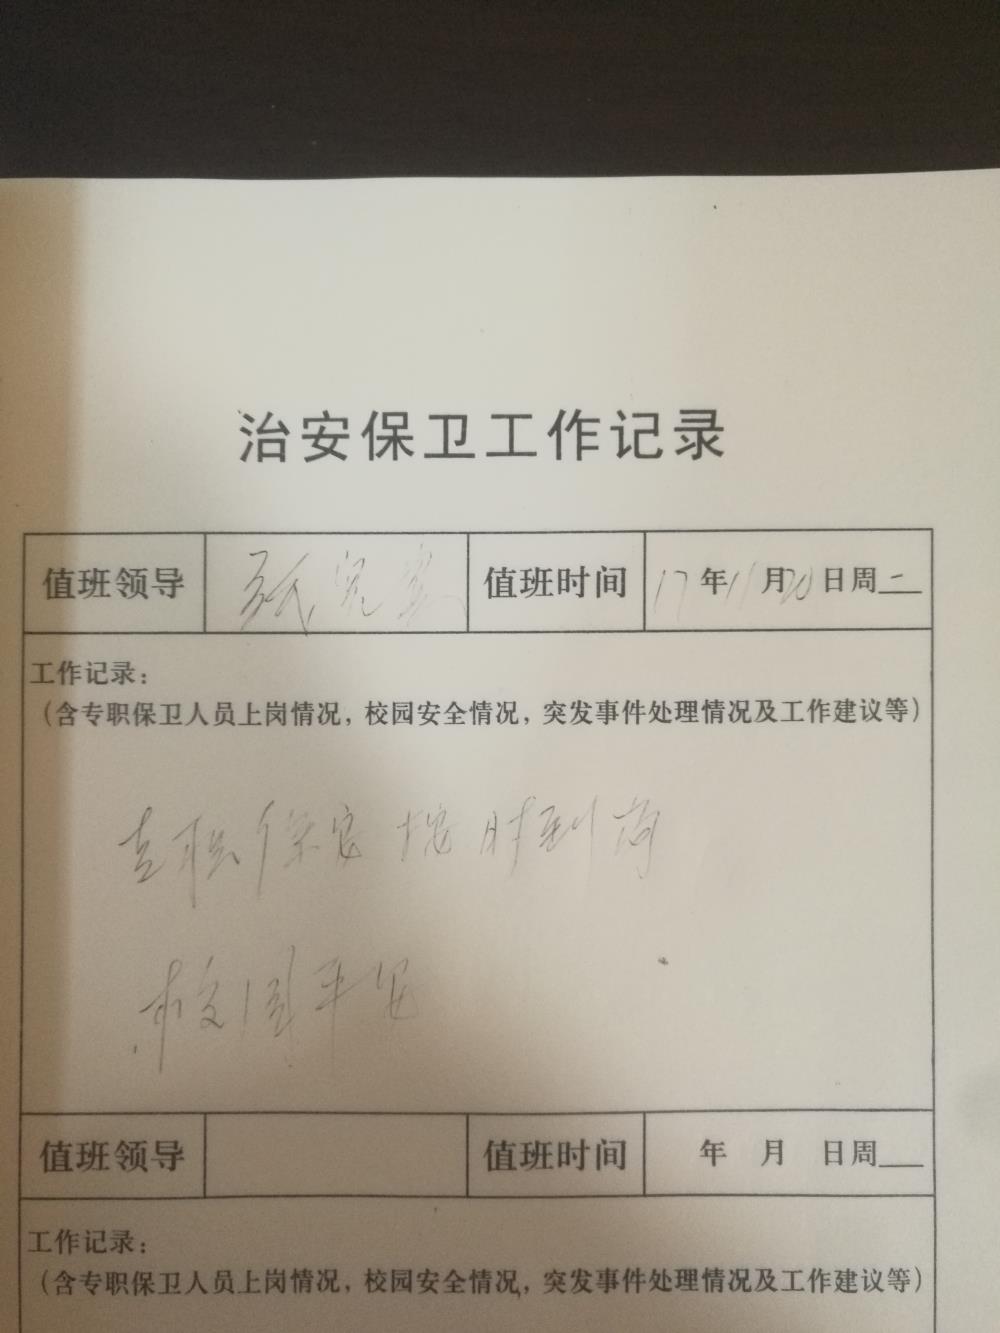 治安保卫工作记录
值班领导 张 值班时间 17年11月20日周二
工作记录：
（含专职保卫人员上岗情况，校园安全情况，突发事件处理情况及工作建议等）
专职保安按时到岗
校园平安
值班领导 值班时间 年 月 日周
工作记录：
（含专职保卫人员上岗情况，校园安全情况，突发事件处理情况及工作建议等）